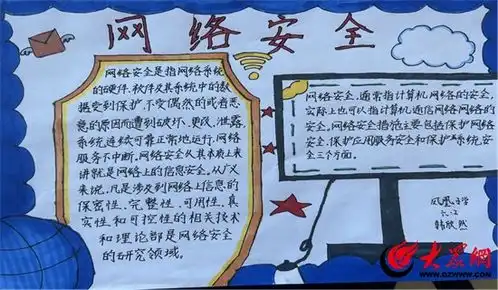 网络安全
网络安全是指网络系统
的硬件,软件及其系统中的数
据受到保护,不受偶然的或者恶
意的原因而遭到破坏、更改、泄露,
系统连续可靠正常地运行,网络
服务不中断。网络安全从其本质上来
讲就是网络上的信息安全。从广义
来说,凡是涉及到网络上信息的
保密性、完整性、可用性、真
实性和可控性的相关技术
和理论都是网络安全
的研究领域。
网络安全,通常指计算机网络的安全,
实际上也可以指计算机通信网络网络的
安全,网络安全措施主要包括保护网络
安全,保护应用服务安全和保护系统安
全三个方面。
六.2
韩欣然
大众网
WWW.DZWWW.COM